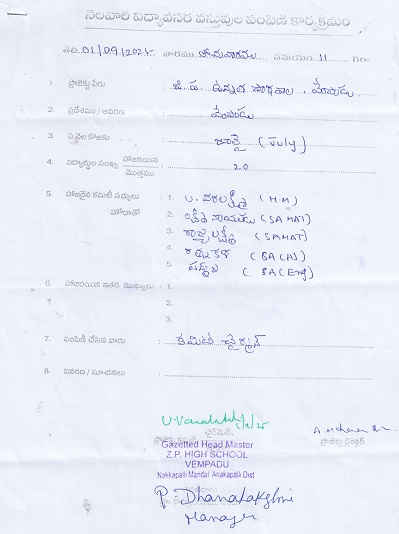 నెలవారి విద్యావసర వస్తువుల పంపిణి కార్యక్రమం
తేది. 01/09/2025 వారము సోమవారము సమయం. 11 గం
1. ప్రాజెక్టు పేరు : జి.ప. ఉన్నత పాఠశాల, వేంపాడు
2. ప్రదేశము / ఆవరణ : వేంపాడు
3. ఏ నెల కొరకు : జూలై (July)
4. విద్యార్థుల సంఖ్య హాజరయిన : 20
మొత్తము
5. హాజరైన కమిటీ సభ్యులు : 1. U. వరలక్ష్మి (HM)
హోదాతో 2. నాయుడు (SA MAT)
3. రాజ్యలక్ష్మి (SAMAT)
4. (SA
5. పద్మజ (SA(Eng)
6. హాజరయిన ఇతర ముఖ్యులు : 1.
2.
3.
7. పంపిణీ చేసిన వారు : కమిటీ చైర్మన్
8. వివరణ / సూచనలు :
U. Varalakshmi
చైర్‌మెన్,
ప్రాజెక్టు కమిటీ ప్రాజెక్టు డైరెక్టర్
Gazetted Head Master
Z.P. HIGH SCHOOL
VEMPADU
Nakkapalli Mandal Anakapalli Dist
P. Dhanalakshmi
Manager